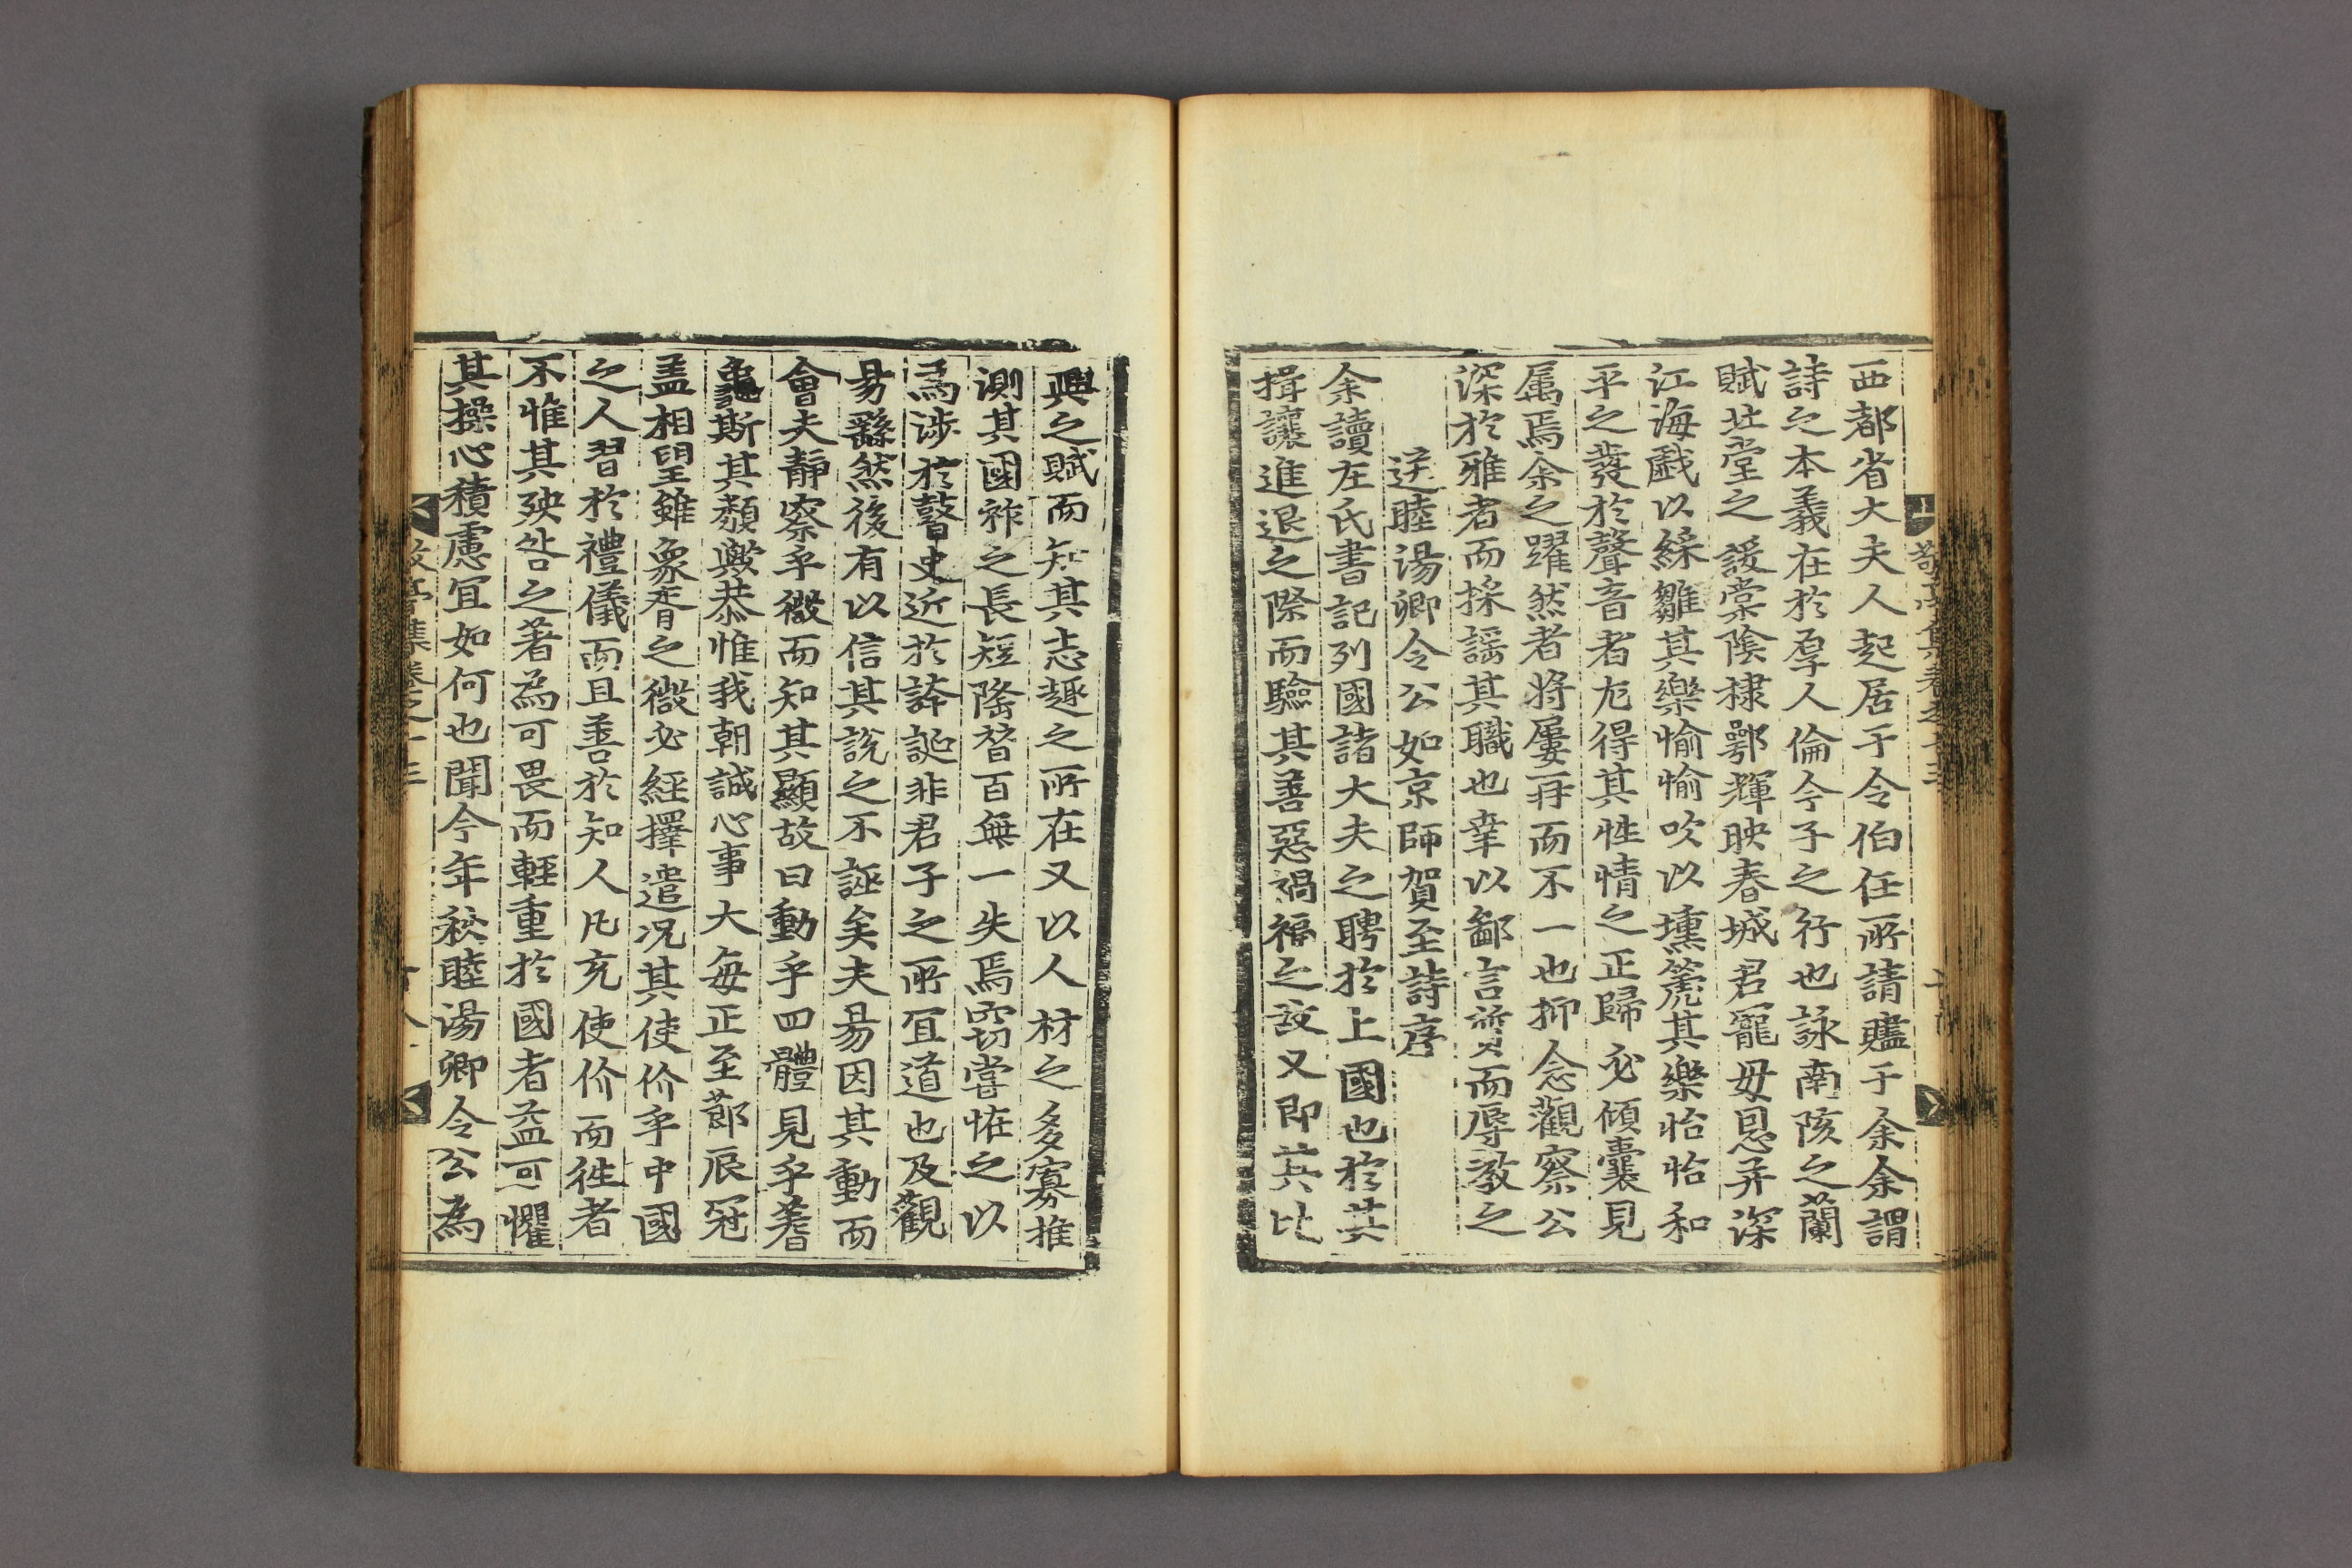 西都省大夫人起居于令伯任所請贐于余余謂
詩之本義在於厚人倫今子之行也詠南陔之蘭
賦北堂之諼棠陰棣鄂輝映春城君寵母恩弄深
江海戱以綵雛其樂愉愉吹以壎箎其樂怡怡和
平之發於聲音者尤得其性情之正歸必傾囊見
属焉余之躍然者將屢再而不一也抑念觀察公
深於雅者而採謡其職也幸以鄙言贄而辱教之
送睦湯卿令公如京師賀至詩序
余讀左氏書記列國諸大夫之聘於上國也於其
揖讓進退之際而驗其善惡禍福之故又即其比
興之賦而知其志趣之所在又以人材之多寡推
測其國祚之長短隆替百無一失焉窃嘗恠之以
爲涉於瞽史近於誇誕非君子之所宜道也及觀
易繇然後有以信其說之不誣矣夫易因其動而
會夫靜察乎微而知其顯故曰動乎四體見乎蓍
龜斯其類歟恭惟我朝誠心事大每正至莭辰冠
盖相望雖象胥之微必經擇遣况其使价乎中國
之人習於禮儀而且善於知人凡充使价而徃者
不惟其殃咎之著為可畏而輕重於國者益可懼
其操心積慮宜如何也聞今年秋睦湯卿令公為
敬亭集卷之十三